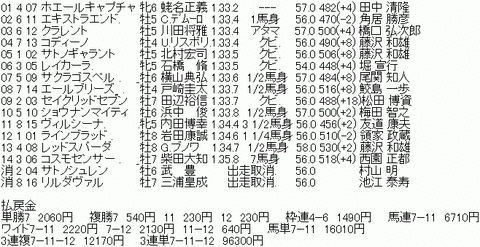 01 4 07 ホエールキャプチャ 牝6 蛯名正義 1.33.2 --- 57.0 482(+4) 田中 清隆
02 6 11 エキストラエンド. 牡5 C.デムーロ 1.33.3 1 馬身 57.0 470(-2) 角居 勝彦
03 6 12 クラレント 牡5 川田将雅 1.33.3 アタマ 57.0 504(+4) 橋口 弘次郎
04 7 13 コディーノ 牡4 U.リスポリ 1.33.3 クビ. 57.0 490(+8) 藤沢 和雄
05 1 02 サトノギャラント 牡5 北村宏司 1.33.3 クビ. 56.0 500(+8) 藤沢 和雄
06 3 05 レイカーラ. 牝5 石橋 脩 1.33.3 クビ. 54.0 448(+4) 堀 宣行
07 5 09 サクラゴスペル. 牡6 横山典弘 1.33.6 1/2 馬身 57.0 494(+8) 尾関 知人
08 7 14 エールブリーズ. 牡4 戸崎圭太 1.33.7 1/2 馬身 56.0 516(+8) 鮫島 一歩
09 2 03 セイクリッドセブン 牡7 田辺裕信 1.33.7 クビ. 56.0 488(+18) 松田 博資
10 5 10 ショウナンマイティ 牡6 浜中 俊 1.33.8 1/2 馬身 57.0 500(+2) 梅田 智之
11 8 15 ヴィルシーナ. 牝5 内田博幸 1.34.4 3 1/2馬身 56.0 456(+2) 友道 康夫
12 1 01 ラインブラッド. 牡8 岩田康誠 1.34.6 1 1/4馬身 56.0 510(-2) 領家 政蔵
13 4 08 レッドスパーダ 牡8 G.ブノワ 1.34.7 1/2 馬身 56.0 540(+8) 藤沢 和雄
14 3 06 コスモセンサー. 牡7 柴田大知 1.35.8 7 馬身 56.0 518(+4) 西園 正都
消 2 04 サトノシュレン 牡6 武 豊 出走取消 56.0 村山 明
消 8 16 リルダヴァル 牡7 三浦皇成 出走取消 56.0 池江 泰寿
払戻金
単勝7 2060円 複勝7 540円 11 230円 12 230円 枠連4-6 1490円 馬連7-11 6710円
ワイド7-11 2220円 7-12 2130円 11-12 640円 馬単7-11 16010円
3連複7-11-12 12170円 3連単7-11-12 96300円